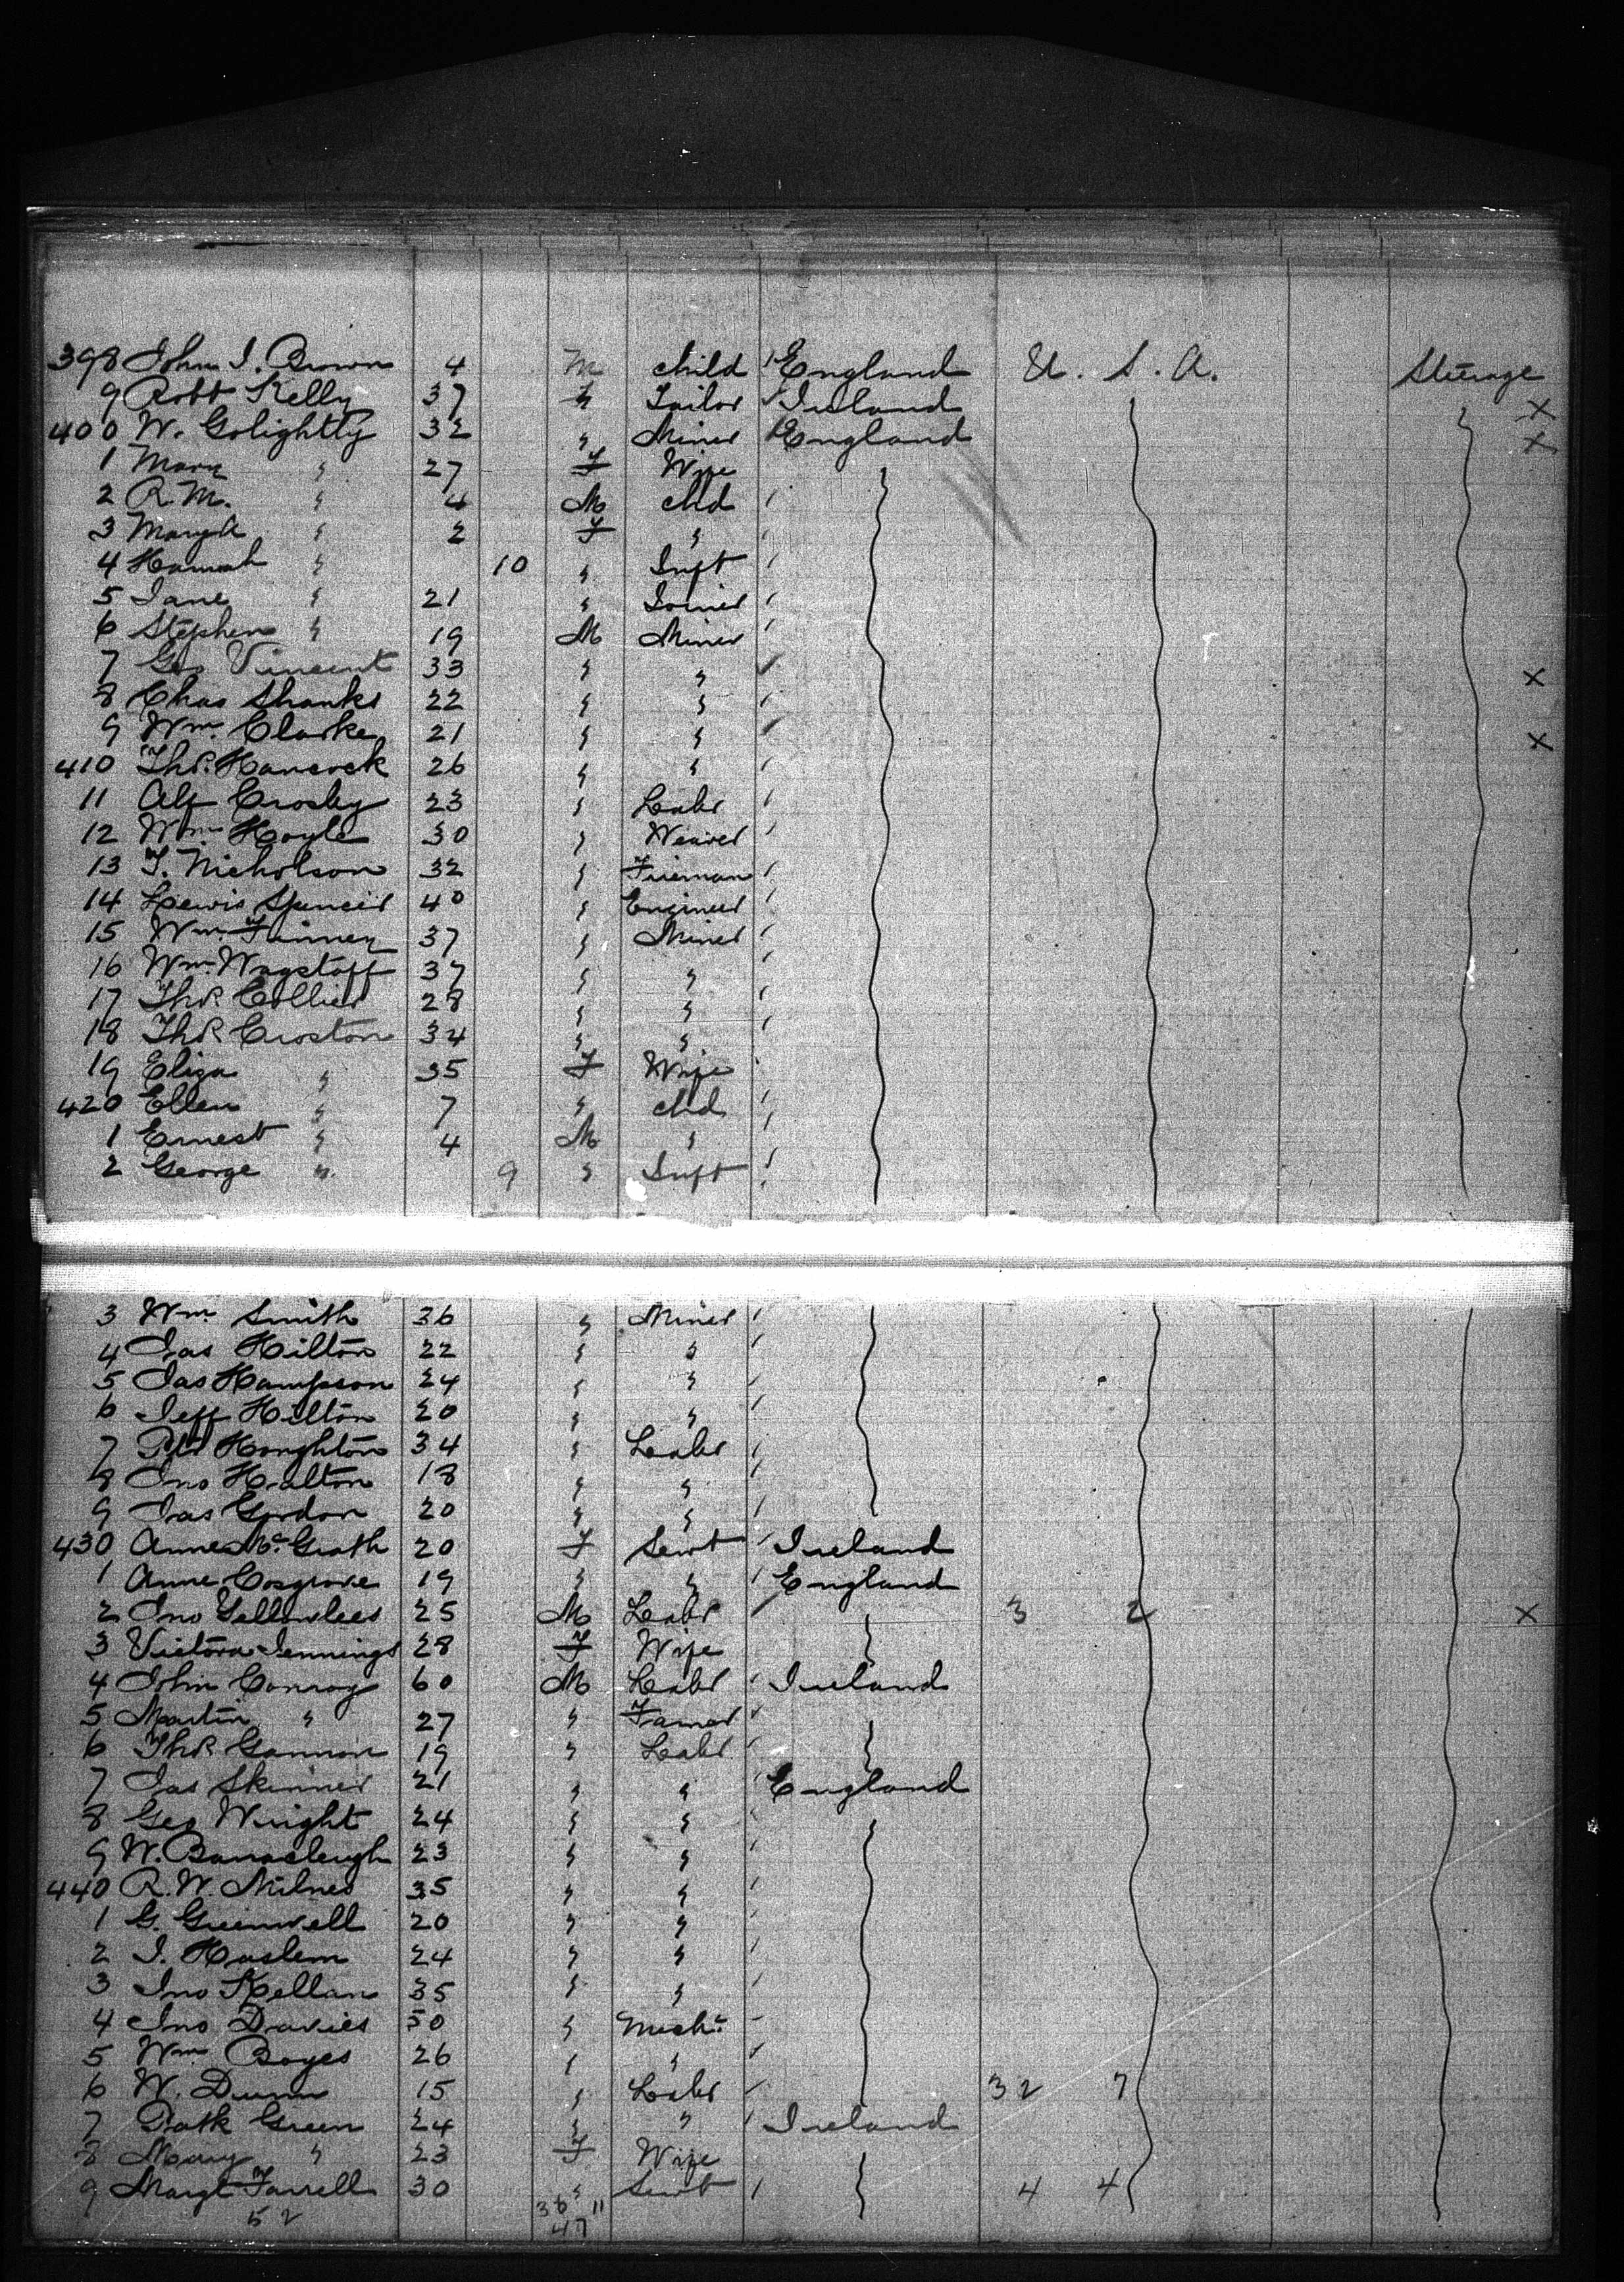 398 John I. Brown 4 M child England U. S. A. Steerage
9 Robt Kelly 37 " Tailor Ireland x
400 W. Golightly 32 " Miner England x
1 Mary " 27 F Wife
2 R. M. " 4 M chd
3 Mary A " 2 F "
4 Hannah " 10 " Inft
5 Jane " 21 "
6 Stephen " 19 M Miner
7 Geo Vincent 33 " " x
8 Chas Shanks 22 " "
9 Wm. Clarke 21 " " x
410 Thos. Hancock 26 " "
11 Alf Crosby 23 " Labr
12 Wm Hoyle 30 " Weaver
13 T. Nicholson 32 " Fireman
14 Lewis Spencer 40 " Engineer
15 Wm. Finney 37 " Miner
16 Wm. Wagstaff 37 " "
17 Thos Collier 28 " "
18 Thos Croston 34 " "
19 Eliza " 35 F Wife
420 Ellen " 7 " chd
1 Ernest " 4 M "
2 George " 9 " Inft
3 Wm Smith 36 " Miner
4 Jas Hilton 22 " "
5 Jas Hampson 24 " "
6 Jeff Hilton 20 " "
7 Peter Houghton 34 " Labr
8 Jno Halton 18 " "
9 Jas Gordon 20 " "
430 Annie McGrath 20 F Servt Ireland
1 Anne Cosgrove 19 " " England
2 Jno Yellowlees 25 M Labr 3 2 x
3 Victora Jennings 28 F Wife
4 John Conroy 60 M Labr Ireland
5 Martin " 27 " Farmer
6 Thos Gannon 19 " Labr
7 Jas Skinner 21 " " England
8 Geo Wright 24 " "
9 W. 23 " "
440 R. W. Milner 35 " "
1 G. Greenwell 20 " "
2 J. Haslem 24 " "
3 Jno Kellan 35 " "
4 Jno Davies 50 " Mechc
5 Wm Boyes 26 " "
6 W. Dunn 15 " Labr 32 7
7 Patk Green 24 " " Ireland
8 Mary " 23 F Wife
9 Margt Farrell 30 " Servt 4 4
52 36 11
47